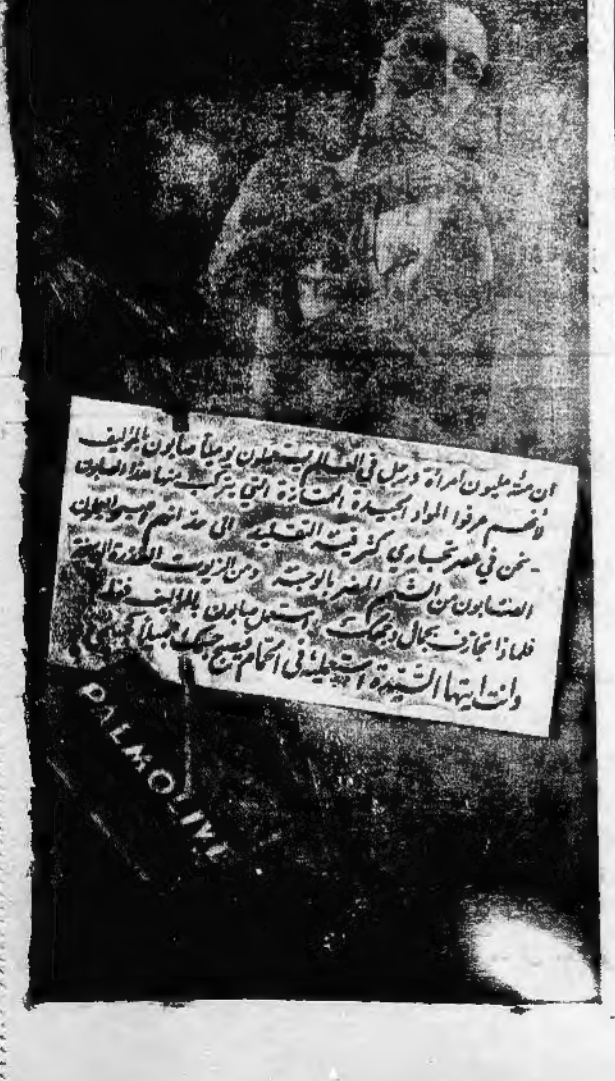 ان مئة مليون امرأة ورجل في العالم يستعملون يومياً صابون بالموليف
لأنهم عرفوا المواد الجيدة الممتازة التي يتركب منها هذا الصابون
نحن في عصر تجاري كثر فيه التقليد الى حد انهم
الصابون من الشحم المضر بالوجه ومن الزيوت القذرة
فلماذا تجازف بجمال وجهك استعمل صابون بالموليف فقط
وانت ايتها السيدة استعمليه في الحمام فيصبح جميلاً
PALMOLIVE